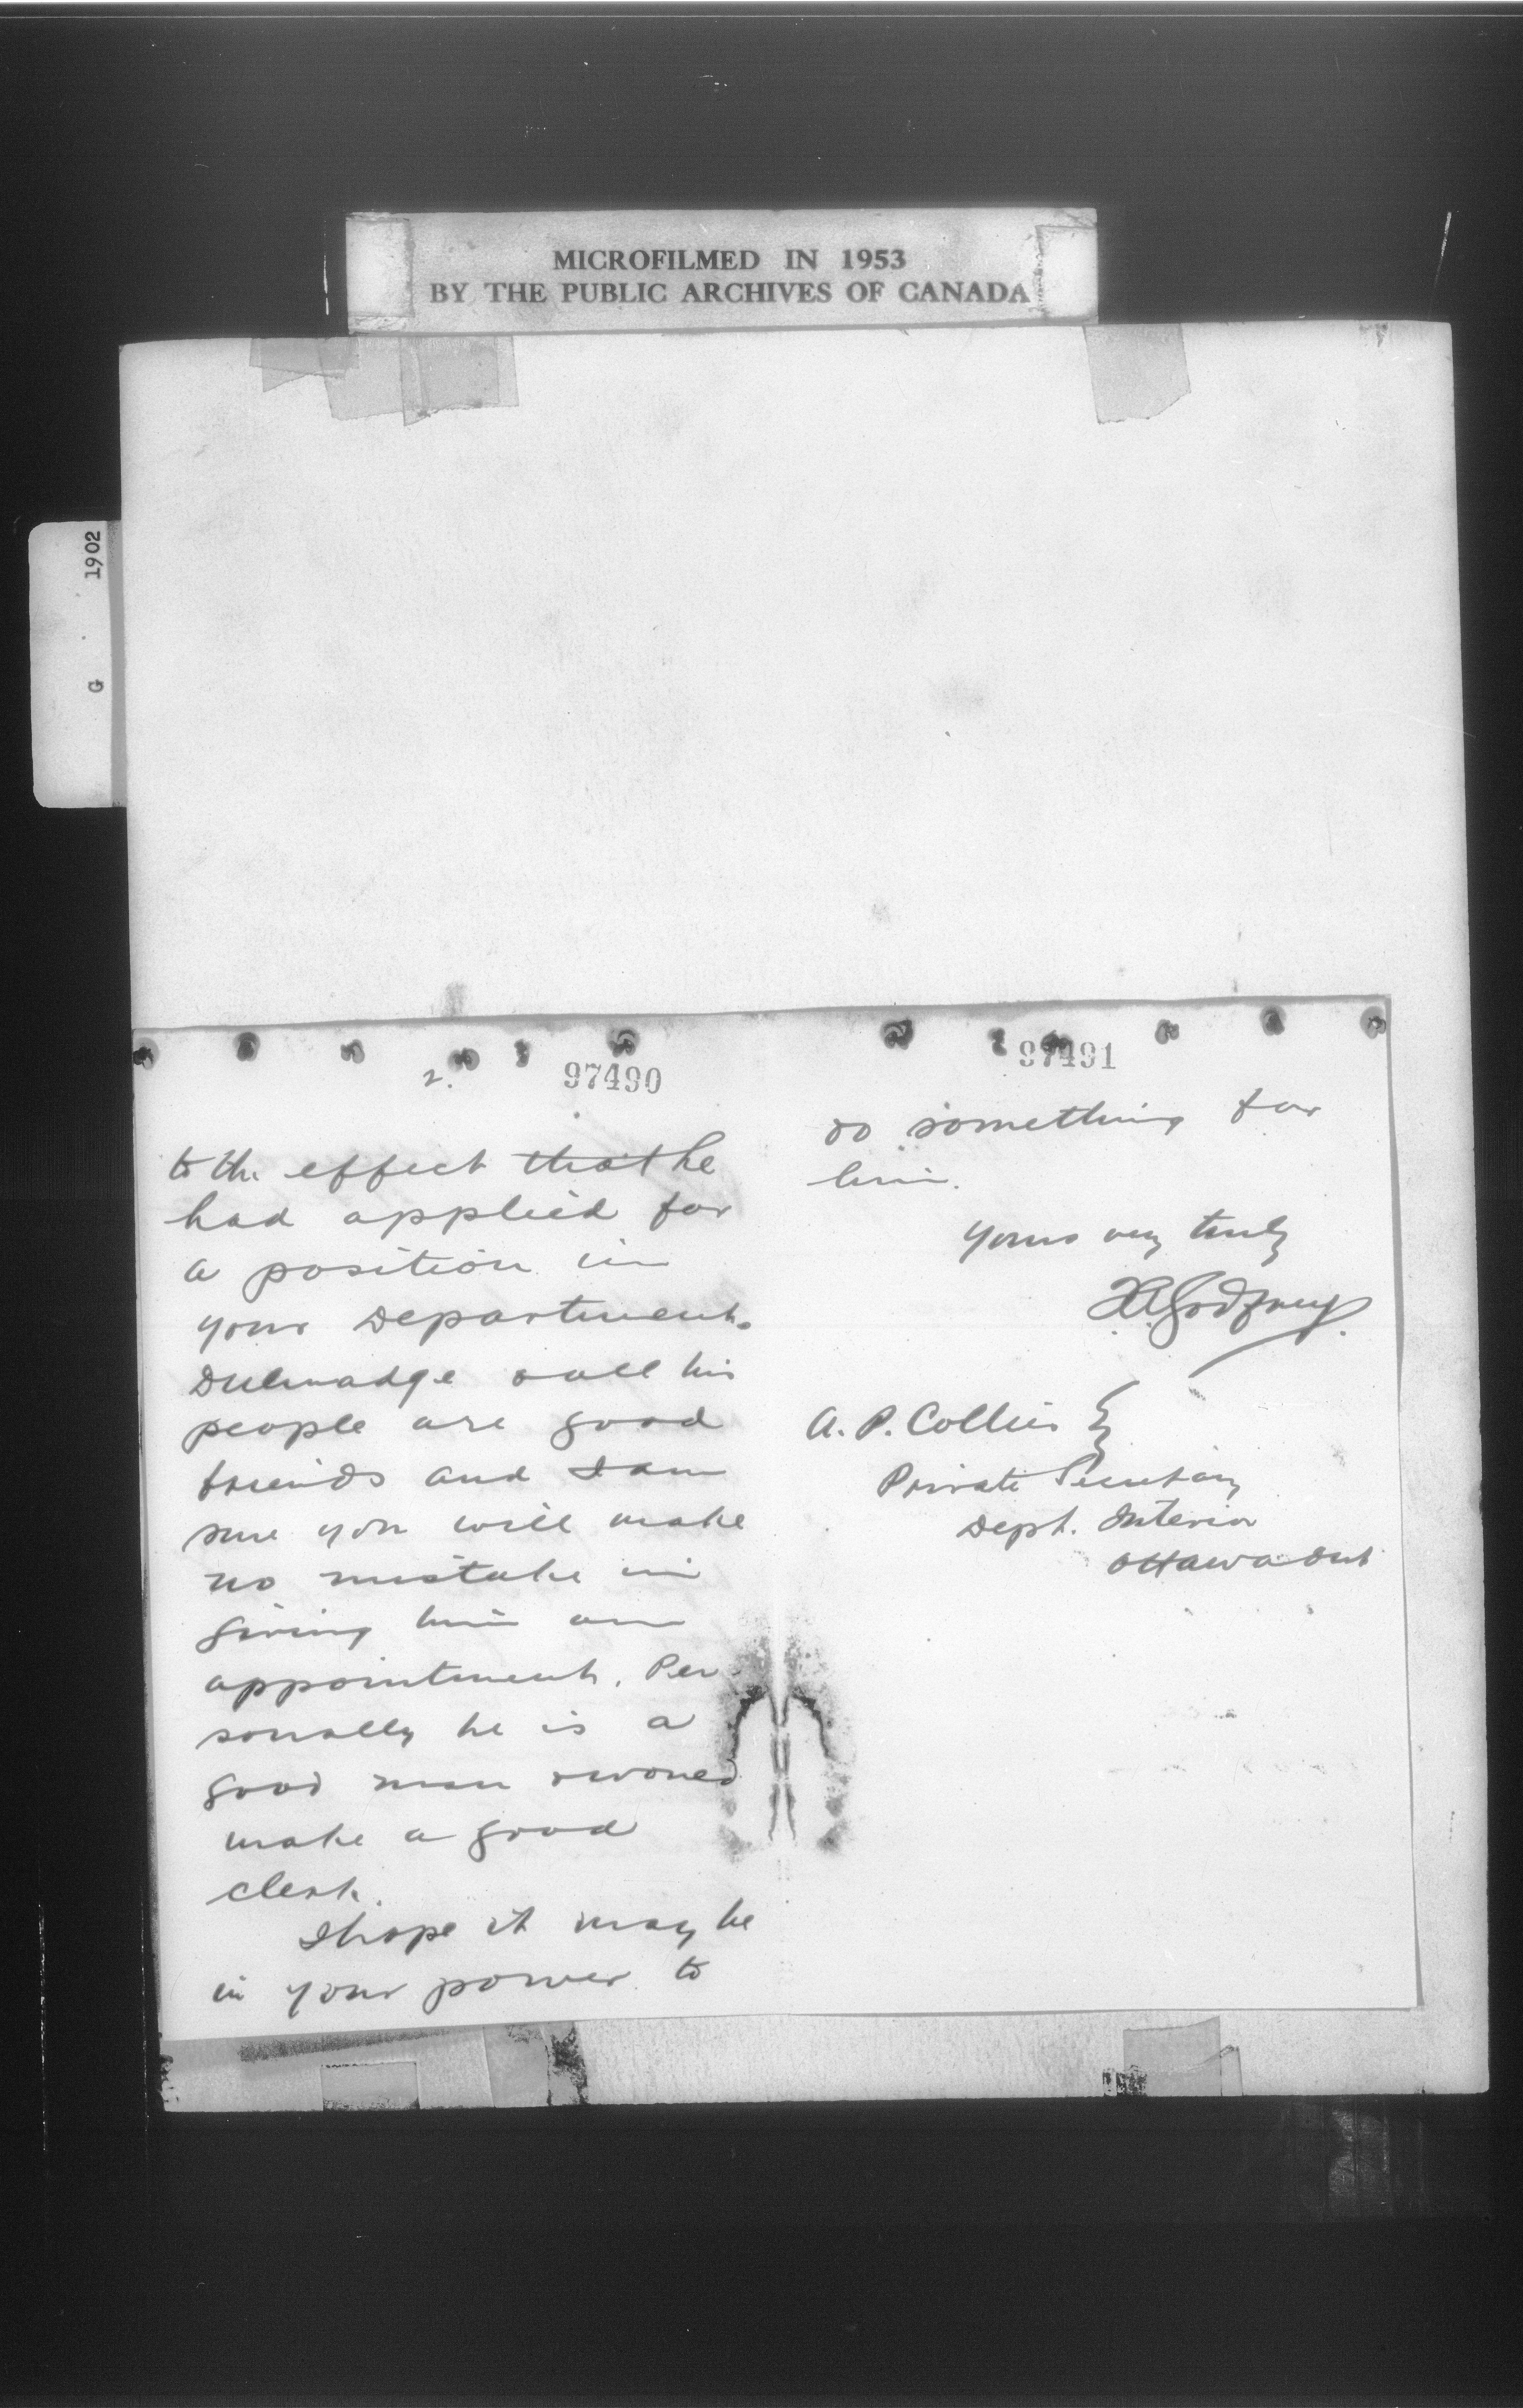 MICROFILMED IN 1953
BY THE PUBLIC ARCHIVES OF CANADA
G 1902
2.
97490
to the effect that he
had applied for
a position in
your Department.
Dulmadge & all his
people are good
friends and I am
sure you will make
no mistake in
giving him an
appointment. Per-
sonally he is a
good man & would
make a good
clerk.
I hope it may be
in your power to
97491
do something for
him.
Yours very truly
Godfrey
A. P. Collier }
Private Secretary
Dept. Interior
Ottawa Ont